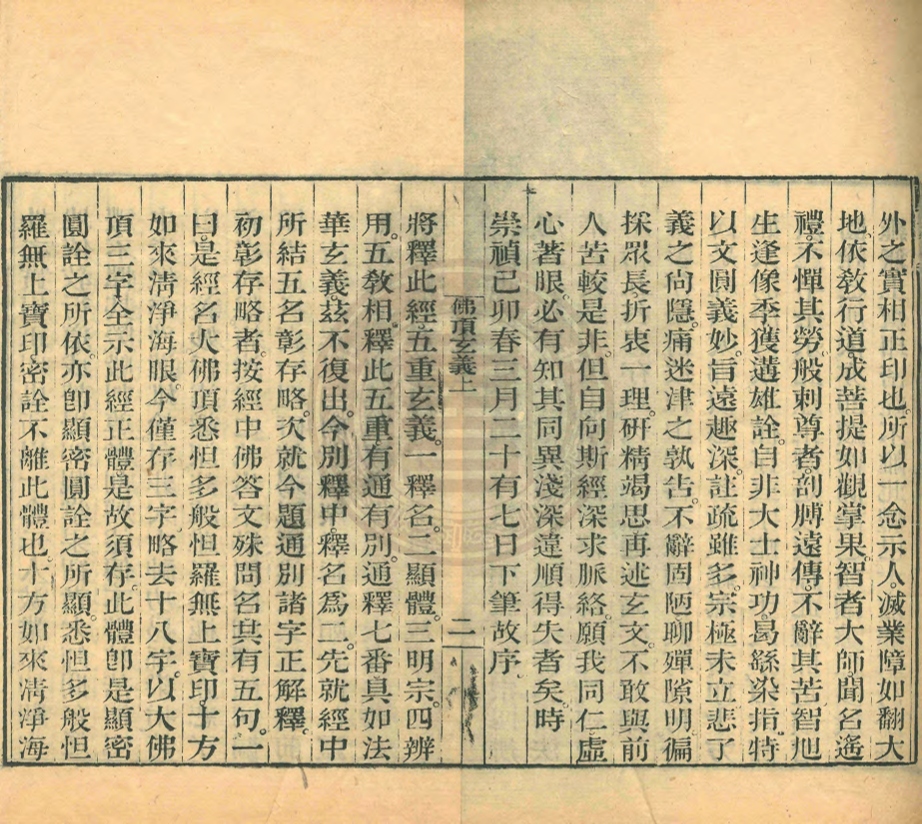 外之實相正印也。所以一念示人。滅業障如翻大
地。依教行道。成菩提如觀掌果。智者大師。聞名遙
禮。不憚其勞。般剌尊者。剖膊遠傳。不辭其苦。智旭
生逢像季。獲遘雄詮。自非大士神功。曷繇染指。特
以文圓義妙。旨遠趣深。註疏雖多。宗極未立。悲了
義之尚隱。痛迷津之孰告。不辭固陋。聊殫隙明。徧
採眾長。折衷一理。研精竭思。再述玄文。不敢與前
人苦較是非。但自向斯經深求脈絡。願我同仁。虛
心著眼。必有知其同異淺深違順得失者矣。時
崇禎己卯春三月二十有七日下筆故序。
佛頂玄義上 二
將釋此經。五重玄義。一釋名。二顯體。三明宗。四辨
用。五教相。釋此五重。有通有別。通釋七番。具如法
華玄義。茲不復出。今別釋中。釋名為二。先就經中
所結五名。彰存略。次就今題通別諸字正解釋。
初彰存略者。按經中佛答文殊問名。具有五句。一
曰。是經名大佛頂悉怛多般怛羅無上寶印。十方
如來清淨海眼。今僅存三字。略去十八字。以大佛
頂三字。全示此經正體。是故須存。此體即是顯密
圓詮之所依。亦即顯密圓詮之所顯。悉怛多般怛
羅無上寶印。密詮不離此體也。十方如來清淨海